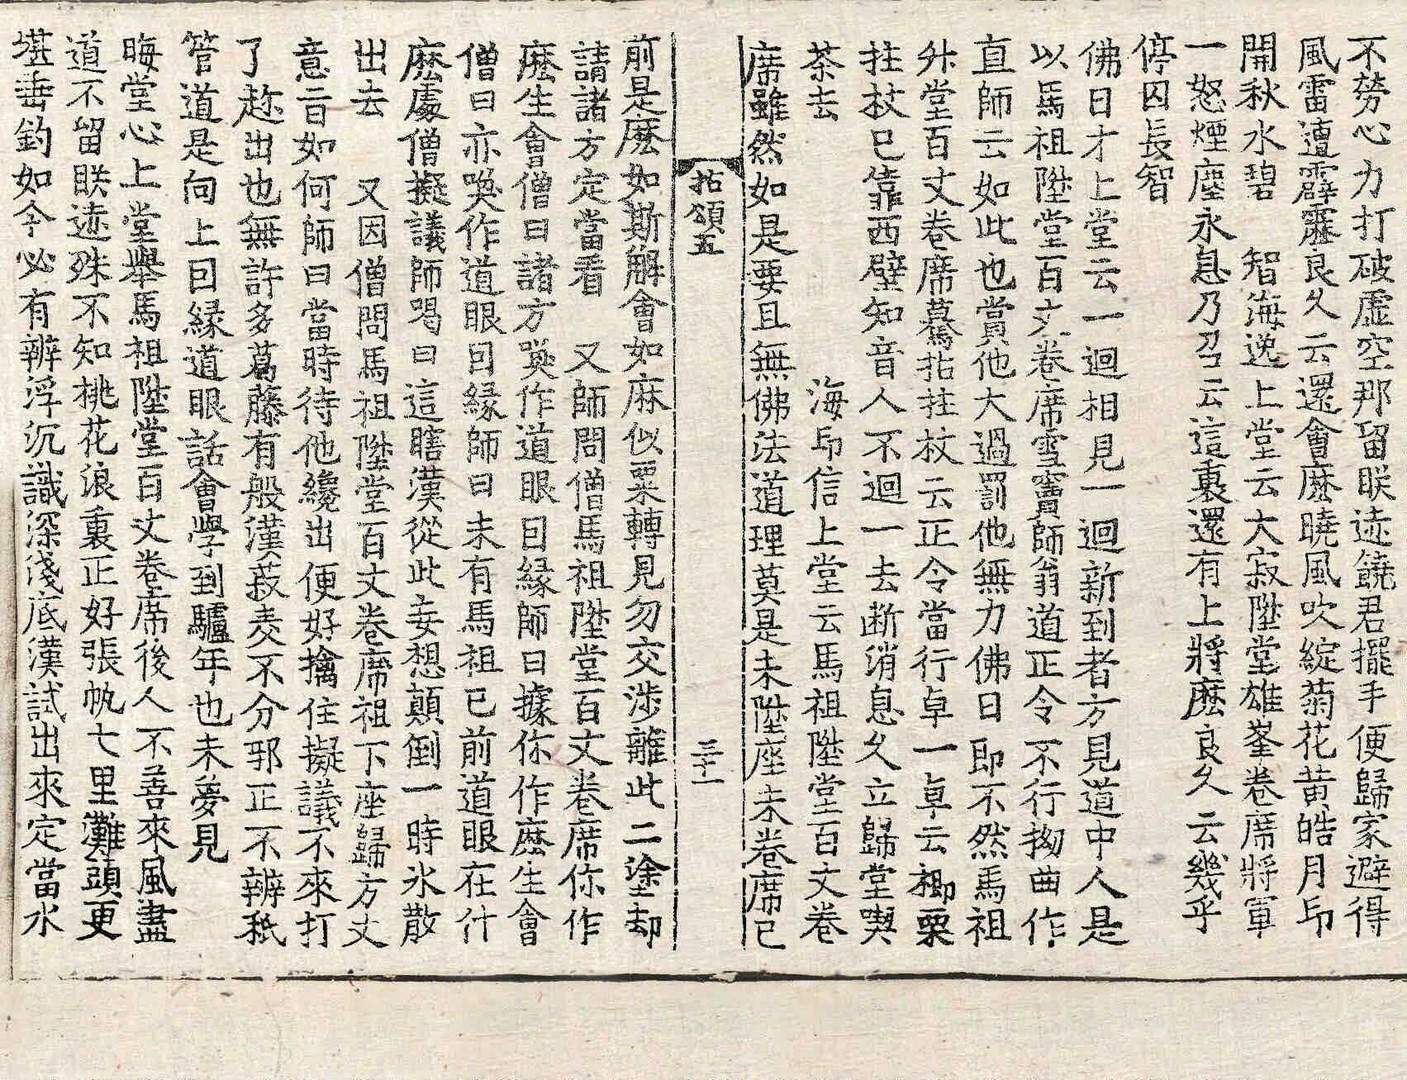 不勞心力打破虛空那留眹迹饒君擺手便歸家避得
風雷遭霹靂良久云還會麽曉風吹綻菊花黃皓月印
開秋水碧　智海逸上堂云大寂陞堂雄峯卷席將軍
一怒煙塵永息乃召云這裏還有上將麽良久云幾乎
停囚長智
佛日才上堂云一迴相見一迴新到者方見道中人是
以馬祖陞堂百丈卷席雪竇師翁道正令不行拗曲作
直師云如此也賞他大過罰他無力佛日即不然馬祖
升堂百丈卷席驀拈拄杖云正令當行卓一卓云楖栗
拄杖已靠西壁知音人不迴一去断消息久立歸堂喫
茶去　海印信上堂云馬祖陞堂百丈卷
席雖然如是要且無佛法道理莫是未陞座未卷席已
拈頌五　三十一
前是麽如斯解會如麻似粟轉見勿交涉離此二塗却
請諸方定當看　又師問僧馬祖陞堂百丈卷席你作
麽生會僧曰諸方喚作道眼因緣師曰據你作麽生會
僧曰亦喚作道眼因緣師曰未有馬祖已前道眼在什
麽處僧擬議師喝曰這瞎漢從此妄想顛倒一時氷散
出去　又因僧問馬祖陞堂百丈卷席祖下座歸方丈
意旨如何師曰當時待他纔出便好擒住擬議不來打
了趂出也無許多葛藤有般漢菽麦不分邪正不辨秖
管道是向上因緣道眼話會學到驢年也未夢見
晦堂心上堂舉馬祖陞堂百丈卷席後人不善來風盡
道不留眹迹殊不知桃花浪裏正好張帆七里灘頭更
堪垂釣如今必有辨浮沉識深淺底漢試出來定當水